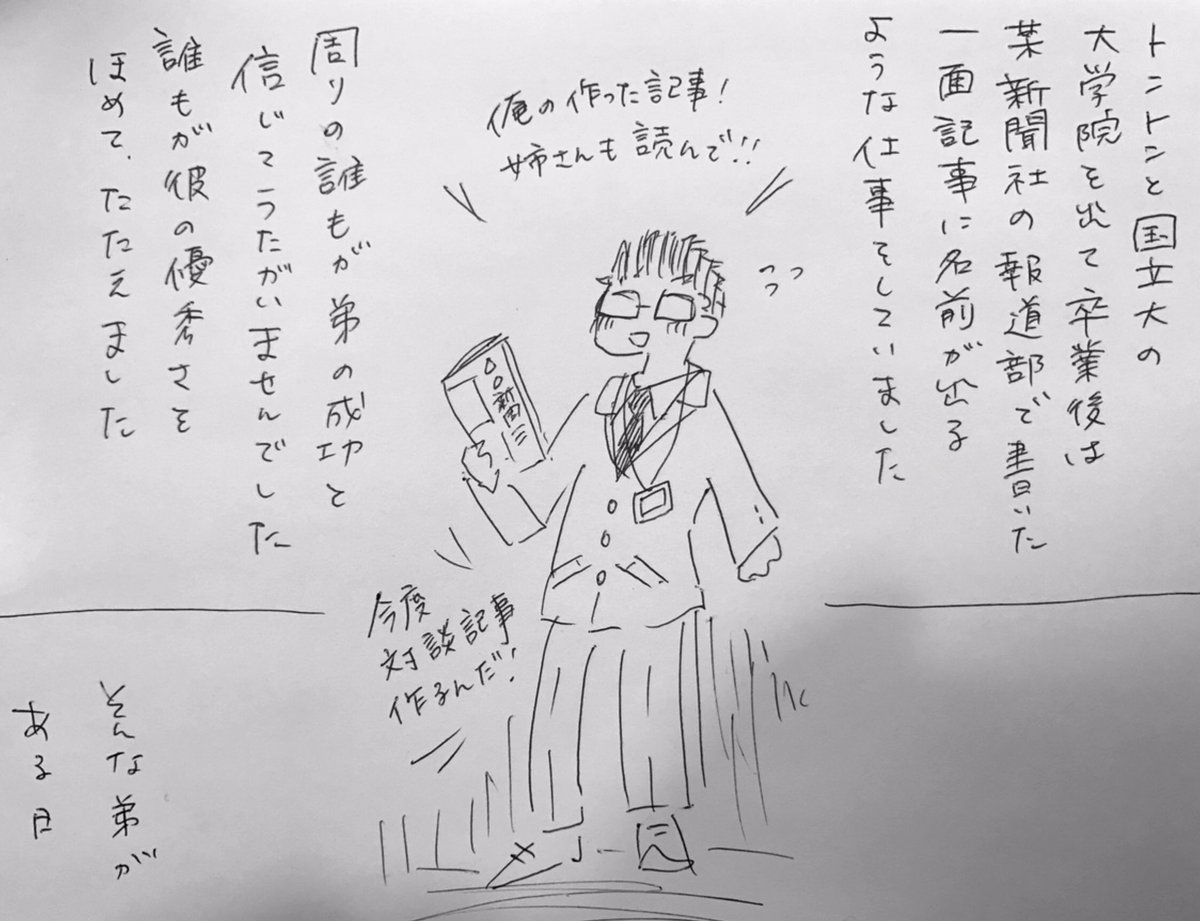 トントンと国立大の
大学院を出て卒業後は
某新聞社の報道部で書いた
一面記事に名前が出る
ような仕事をしていました
俺の作った記事!
姉さんも読んで!!
△○新聞
周りの誰もが弟の成功と
信じてうたがいませんでした
誰もが彼の優秀さを
ほめて、たたえました
今度
対談記事
作るんだ!
そんな弟が
ある日